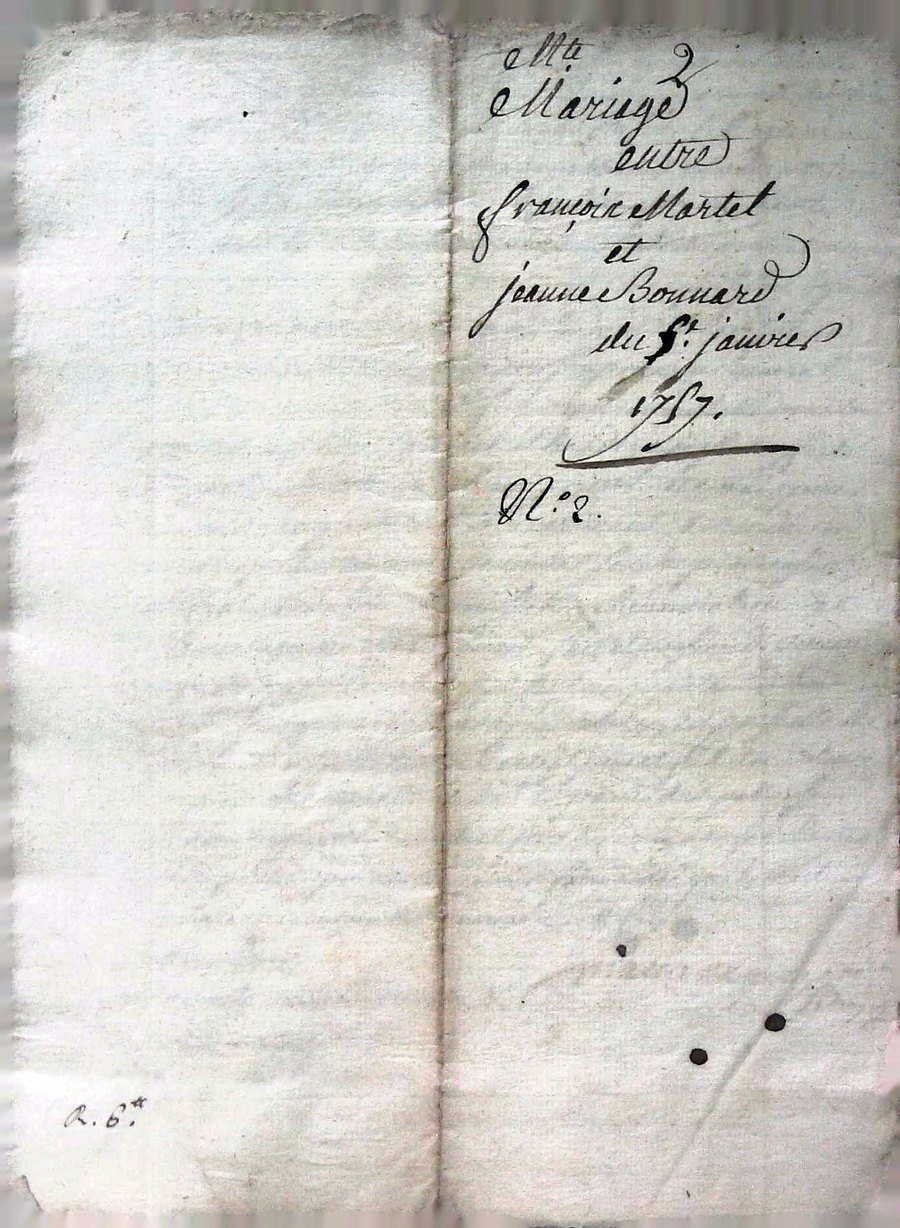 Mte
2
Mariage
entre
françois Martel
et
jeanne Bonnard
du janvier
1757.
N.o 2.
R. 6.#